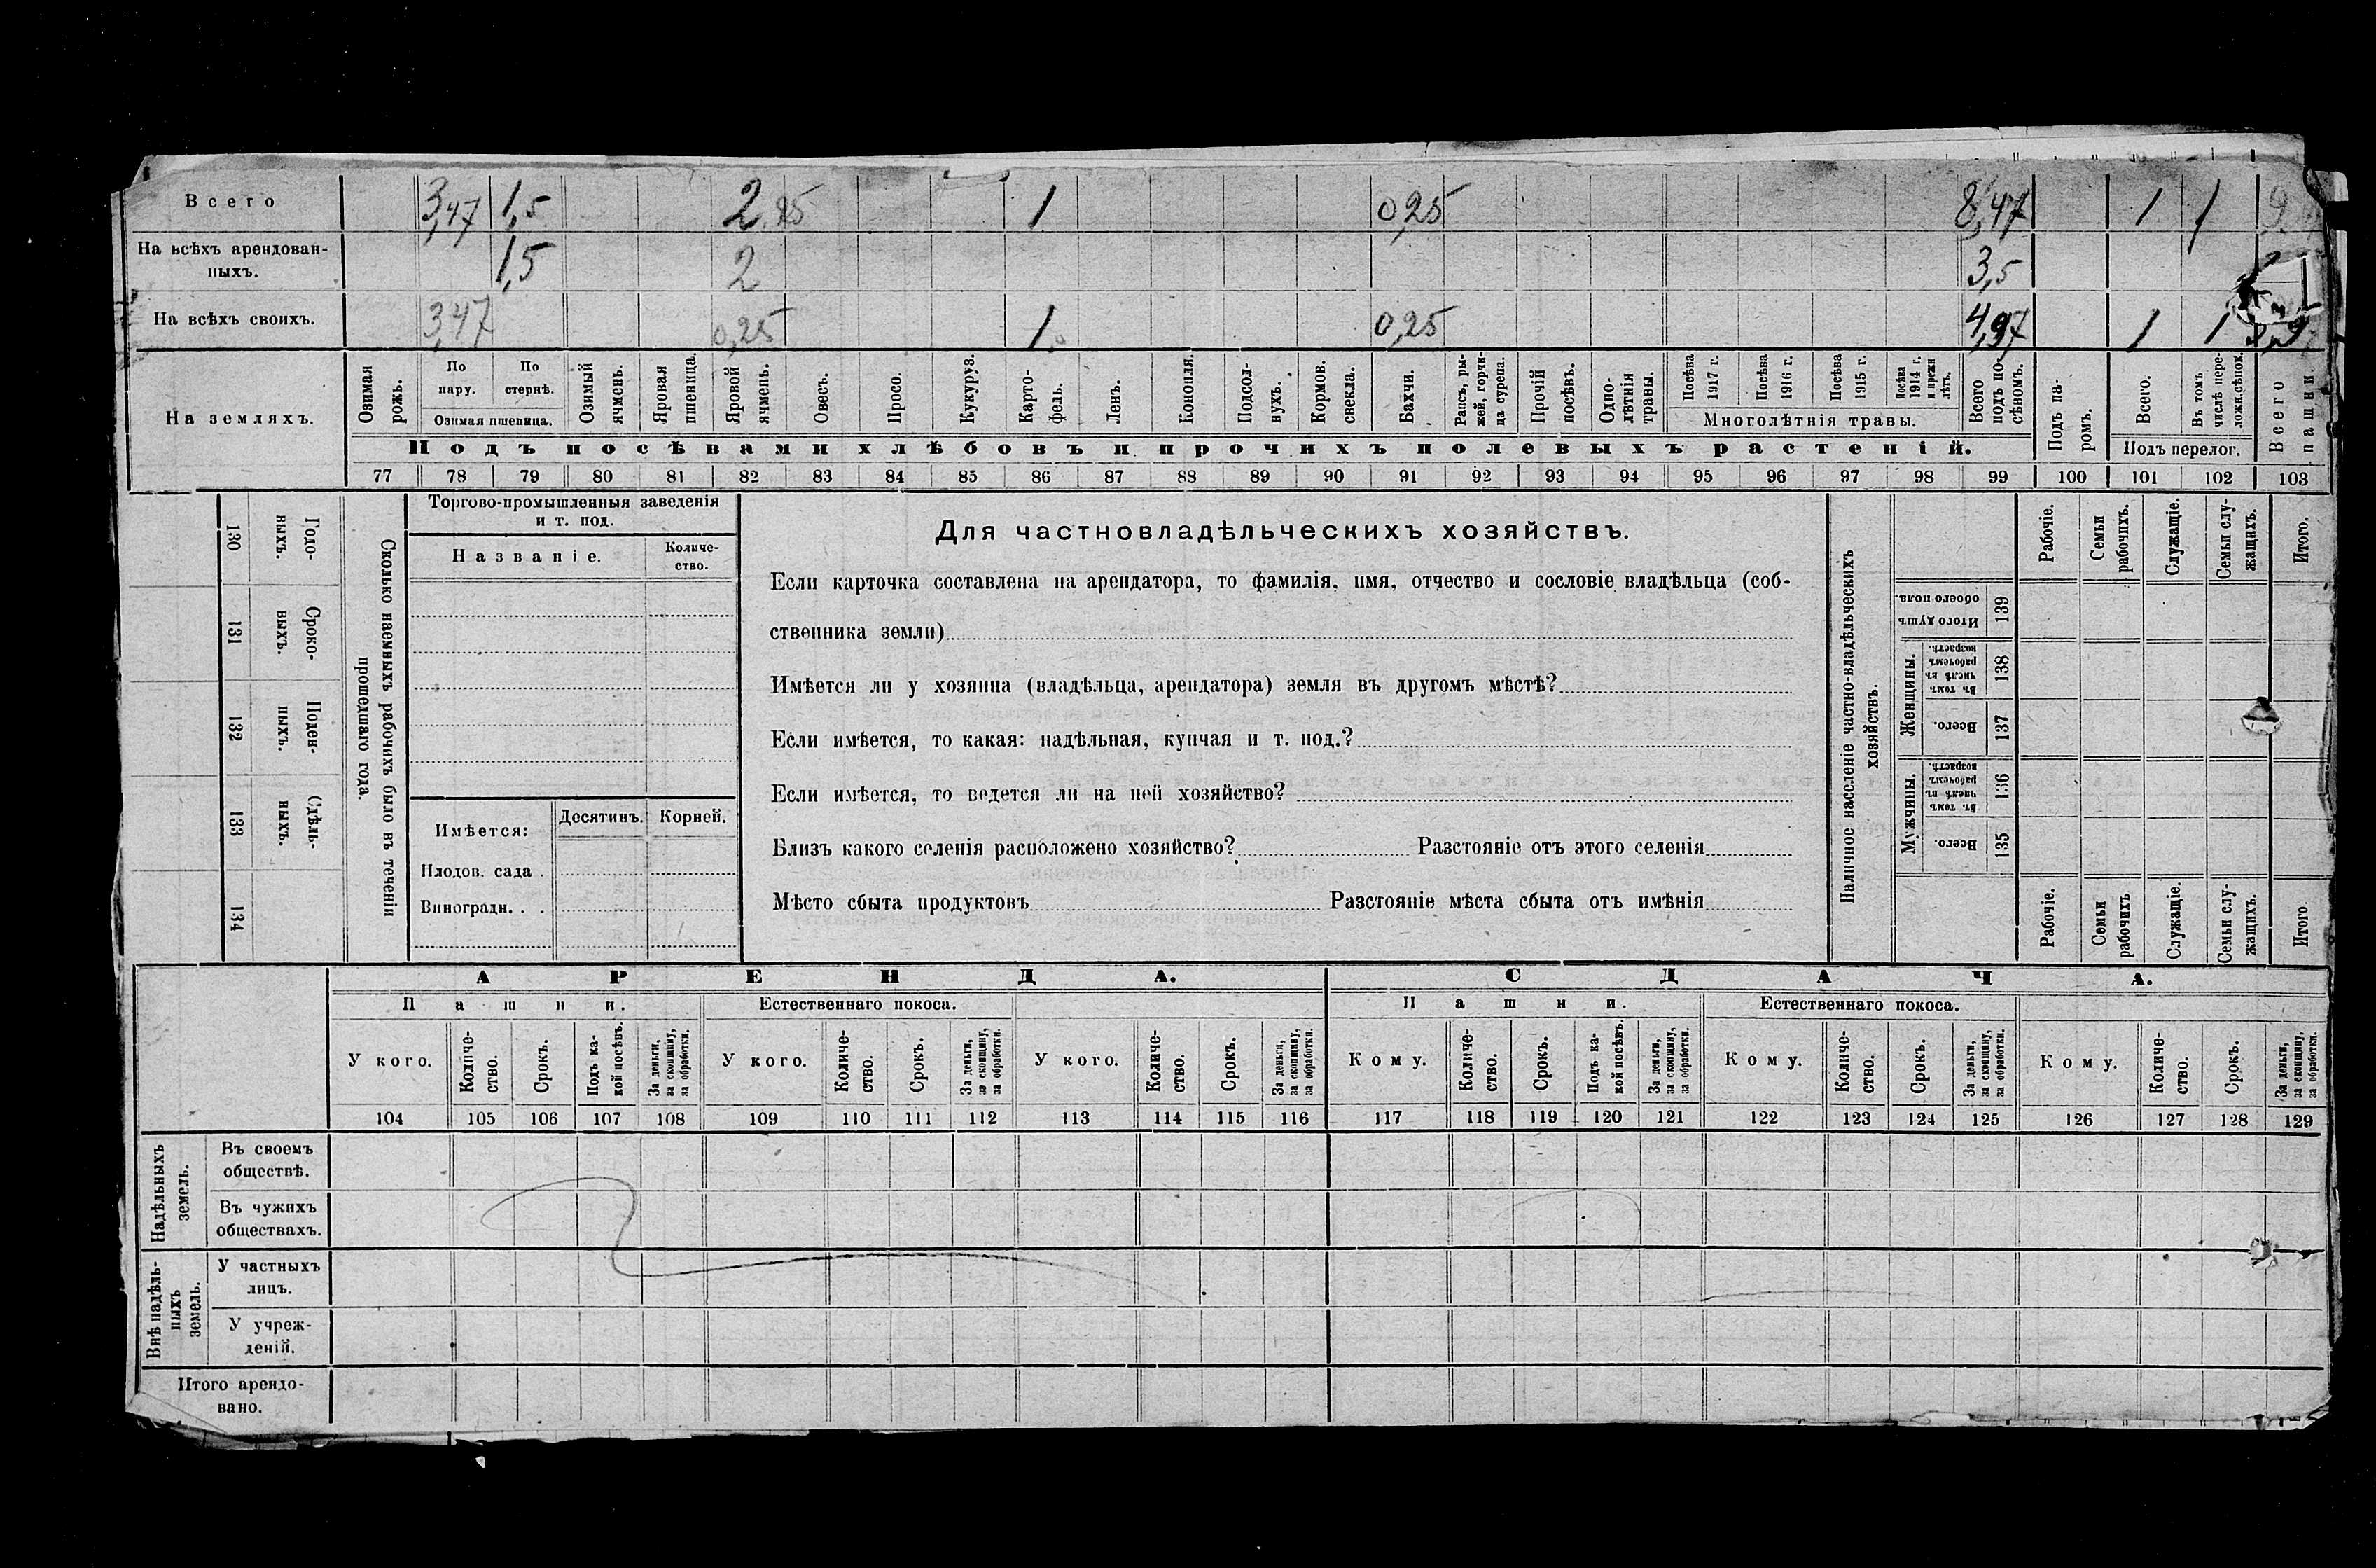 Всего 3,47 1,5 2,25 1 0,25 8,47 1 1
На всѣхъ арендован-
ныхъ. 1,5 2 3,5
На всѣхъ своихъ. 3,47 0,25 1 0,25 4,97 1 1
На земляхъ.
Озимая рожь.
По пару.
По стернѣ.
Озимая пшеница.
Озимый ячмень.
Яровая пшеница.
Яровой ячмень.
Овесъ.
Просо.
Кукуруз.
Карто-
фель.
Ленъ.
Конопля.
Подсол-
нухъ.
Кормов. свекла.
Бахчи.
Рапсъ, ры-
жей, горчи-
ца сурепа.
Прочій посѣвъ.
Одно-
лѣтнія травы.
Посѣва 1917 г.
Посѣва 1916 г.
Посѣва 1915 г.
Посѣва 1914 г. и прежн лѣтъ.
Многолѣтнія травы.
Всего подъ по-
сѣвомъ.
Подъ посѣвами хлѣбовъ и прочихъ полевыхъ растеній.
Подъ па-
ромъ.
Всего.
Въ томъ числѣ пере-
ложн.сѣнок.
Подъ перелог.
Всего пашни.
77 78 79 80 81 82 83 84 85 86 87 88 89 90 91 92 93 94 95 96 97 98 99 100 101 102 103
130 Годо-
выхъ.
131 Сроко-
выхъ.
132 Поден-
ныхъ.
133 Сдѣль-
ныхъ.
134
Сколько наемныхъ рабочихъ было въ теченіи
прошедшаго года.
Торгово-промышленныя заведенія
и т. под.
Названіе.
Количе-
ство.
Имѣется: Десятинъ. Корней.
Плодов. сада .
Виноградн. . .
Для частновладѣльческихъ хозяйствъ.
Если карточка составлена на арендатора, то фамилія, имя, отчество и сословіе владѣльца (соб-
ственника земли)
Имѣется ли у хозяина (владѣльца, арендатора) земля въ другомъ мѣстѣ?
Если имѣется, то какая: надѣльная, купчая и т. под.?
Если имѣется, то ведется ли на ней хозяйство?
Близъ какого селенія расположено хозяйство? Разстояніе отъ этого селенія
Мѣсто сбыта продуктовъ Разстояніе мѣста сбыта отъ имѣнія
Наличное населеніе частно-владѣльческихъ
хозяйствъ.
Рабочіе.
Семьи рабочихъ.
Служащіе.
Семьи слу-
жащихъ.
Итого.
Итого душъ обоего пола. 139
Женщины.
Въ томъ числѣ въ рабочемъ возрастѣ. 138
Всего. 137
Мужчины.
Въ томъ числѣ въ рабочемъ возрастѣ. 136
Всего. 135
Рабочіе.
Семьи рабочихъ
Служащіе.
Семьи слу-
жащихъ.
Итого.
АРЕНДА. СДАЧА.
Пашни. Естественнаго покоса. Пашни. Естественнаго покоса.
У кого.
Количе-
ство.
Срокъ.
Подъ ка-
кой посѣвъ.
За деньги, за скопщину, за обработки.
У кого.
Количе-
ство.
Срокъ.
За деньги, за скопщину, за обработки.
У кого.
Количе-
ство.
Срокъ.
За деньги, за скопщину, за обработки.
Кому.
Количе-
ство.
Срокъ.
Подъ ка-
кой посѣвъ.
За деньги, за скопщину, за обработки.
Кому.
Количе-
ство.
Срокъ.
За деньги, за скопщину, за обработки.
Кому.
Количе-
ство.
Срокъ.
За деньги, за скопщину, за обработки.
104 105 106 107 108 109 110 111 112 113 114 115 116 117 118 119 120 121 122 123 124 125 126 127 128 129
Надѣльныхъ
земель.
Въ своемъ
обществѣ.
Въ чужихъ
обществахъ.
Внѣ надѣль-
ныхъ
земель.
У частныхъ
лицъ.
У учреж-
деній.
Итого арендо-
вано.